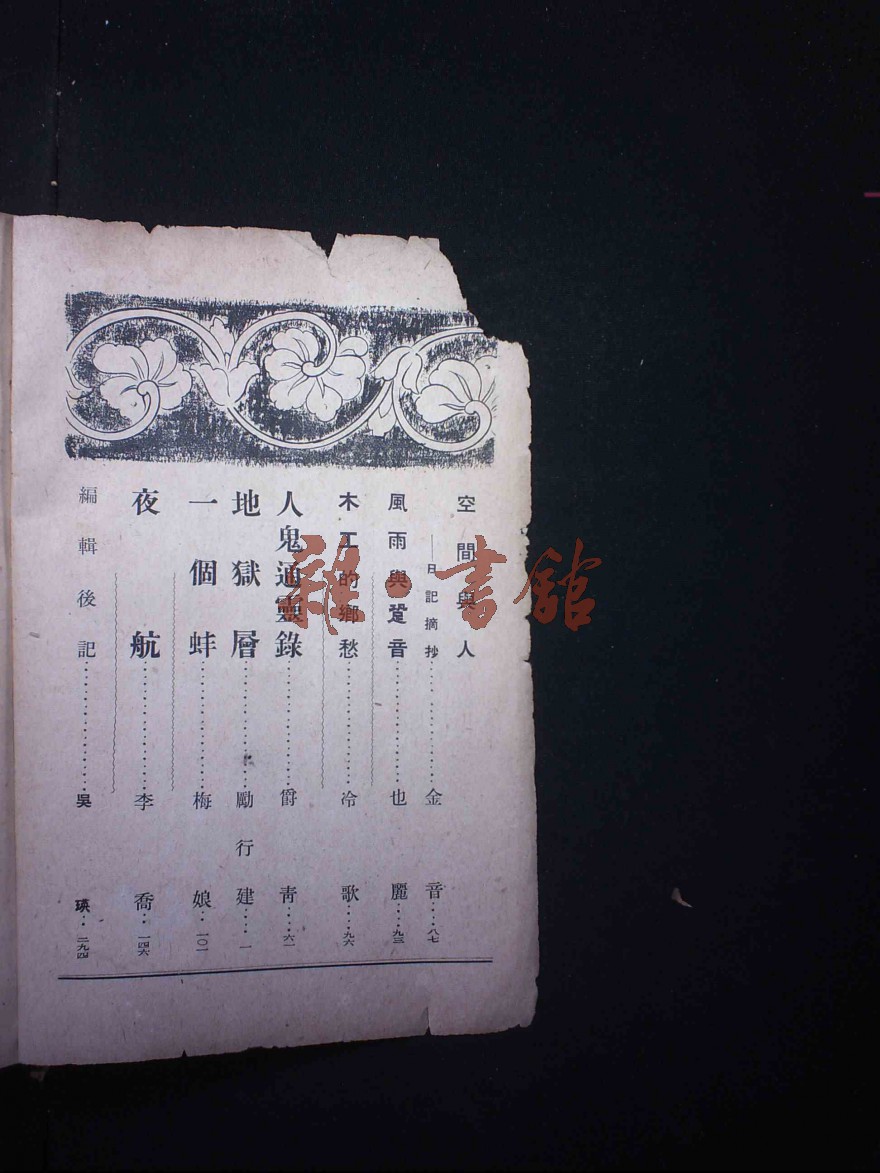 空間與人
——日記摘抄………………金音……八七
風雨與跫音………………也麗……九三
木工的鄉愁………………冷歌……九六
人鬼通靈錄………………爵青……六一
地獄層………………勵行建……一
一個蚌………………梅娘……一〇一
夜航………………李喬……一四六
編輯後記………………吳瑛……二九四
雜·書館